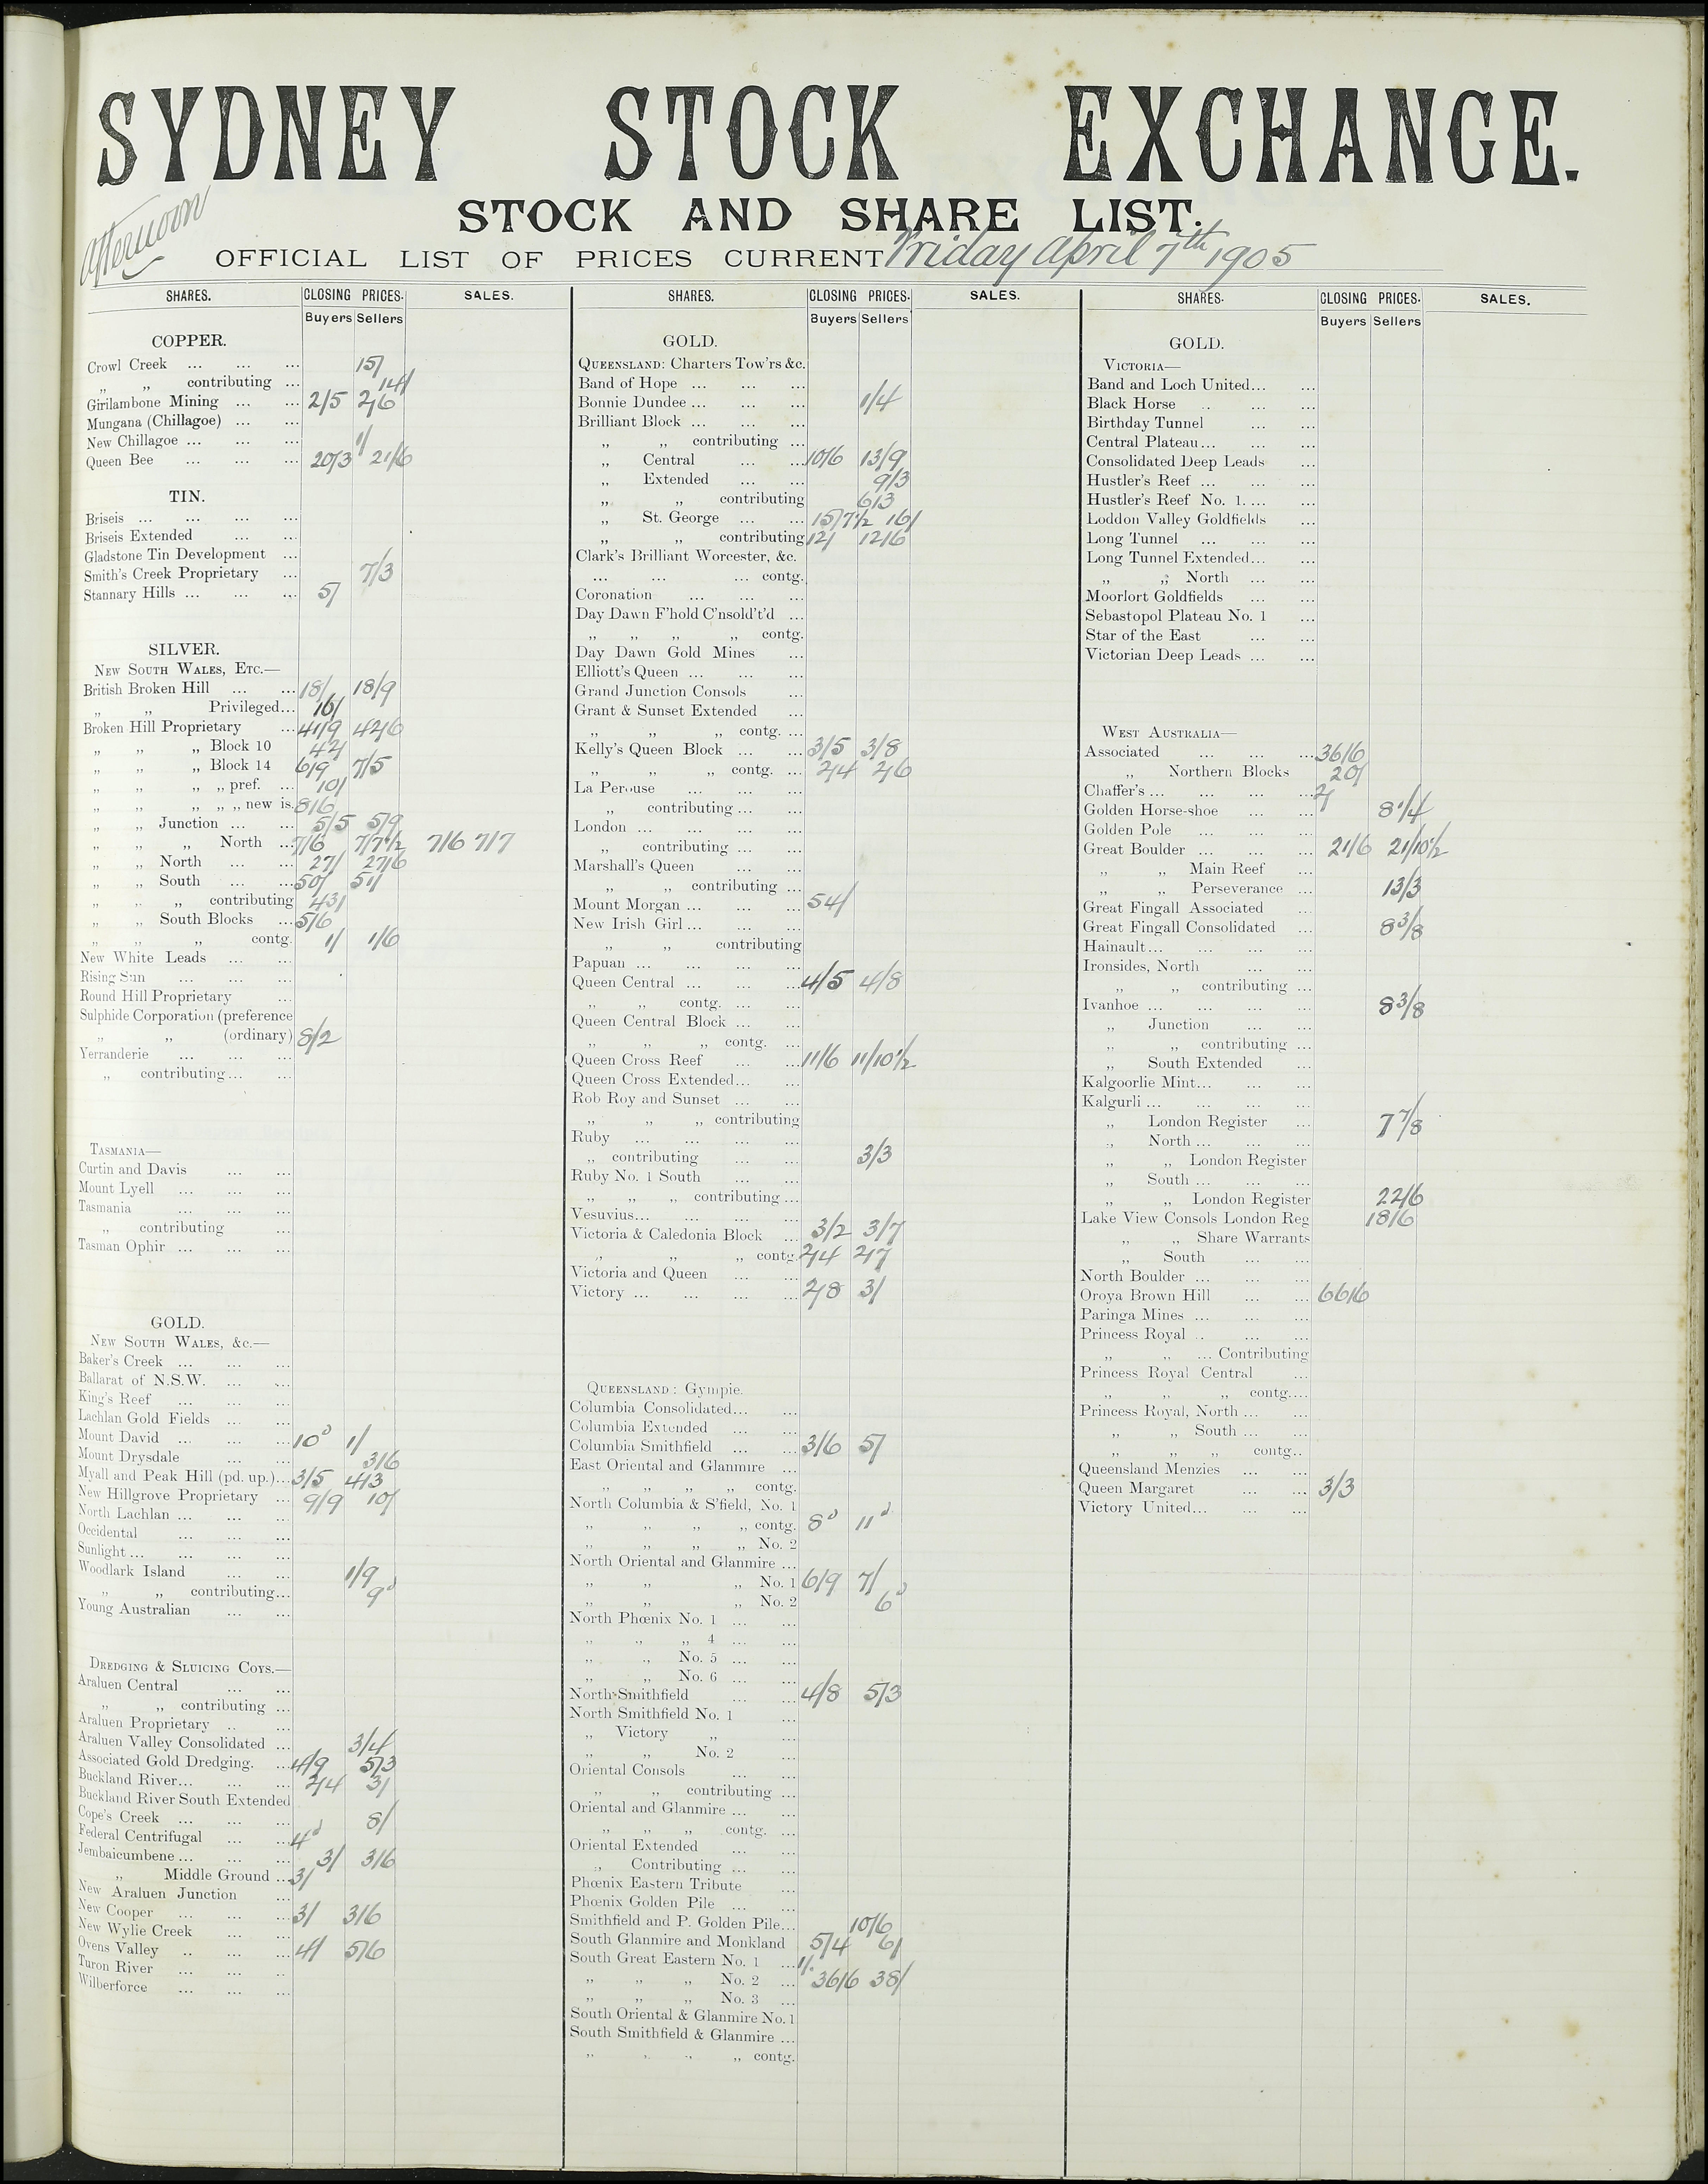 SYDNEY STOCK EXCHANGE.
Afternoon
STOCK AND SHARE LIST.
OFFICIAL LIST OF PRICES CURRENT Friday April 7th 1905
SHARES. CLOSING PRICES. SALES.
Buyers Sellers
COPPER.
Crowl Creek ... ... ... 15/
„ „ contributing ... 14/
Girilambone Mining ... ... 2/5 2/6
Mungana (Chillagoe) ... ...
New Chillagoe ... ... ... 1/
Queen Bee ... ... ... 20/3 21/6
TIN.
Briseis ... ... ... ...
Briseis Extended ... ...
Gladstone Tin Development ...
Smith's Creek Proprietary ... 7/3
Stannary Hills ... ... ... 5/
SILVER.
NEW SOUTH WALES, ETC.—
British Broken Hill ... ... 18/ 18/9
„ „ Privileged... 16/
Broken Hill Proprietary ... 41/9 42/6
„ „ „ Block 10 42/
„ „ „ Block 14 6/9 7/5
„ „ „ „ pref. ... 10/
„ „ „ „ „ new is. 8/6
„ „ Junction ... ... 5/5 5/9
„ „ „ North ... 7/6 7/7½ 7/6 7/7
„ „ North ... ... 27/ 27/6
„ „ South ... ... 50/ 51/
„ „ „ contributing 43/
„ „ South Blocks ... 5/6
„ „ „ contg. 1/ 1/6
New White Leads ... ...
Rising Sun ... ... ...
Round Hill Proprietary ...
Sulphide Corporation (preference
„ „ (ordinary) 8/2
Yerranderie ... ... ...
„ contributing ... ...
TASMANIA—
Curtin and Davis ... ...
Mount Lyell ... ... ...
Tasmania ... ... ...
„ contributing ...
Tasman Ophir ... ... ...
GOLD.
NEW SOUTH WALES, &c.—
Baker's Creek ... ... ...
Ballarat of N.S.W. ... ...
King's Reef ... ... ...
Lachlan Gold Fields ... ...
Mount David ... ... ... 10d 1/
Mount Drysdale ... ... 3/6
Myall and Peak Hill (pd. up.)... 3/5 4/3
New Hillgrove Proprietary ... 9/9 10/
North Lachlan ... ... ...
Occidental ... ... ...
Sunlight ... ... ... ...
Woodlark Island ... ... 1/9
„ „ contributing... 9d
Young Australian ... ...
DREDGING & SLUICING COYS.—
Araluen Central ... ...
„ „ contributing ...
Araluen Proprietary .. ...
Araluen Valley Consolidated ... 3/4
Associated Gold Dredging. ... 4/9 5/3
Buckland River... ... ... 2/4 3/
Buckland River South Extended
Cope's Creek ... ... ... 8/
Federal Centrifugal ... ... 4d
Jembaicumbene ... ... ... 3/ 3/6
„ Middle Ground ... 3/
New Araluen Junction ...
New Cooper ... ... ... 3/ 3/6
New Wylie Creek ... ...
Ovens Valley .. ... ... 4/ 5/6
Turon River ... ... ..
Wilberforce ... ... ...
SHARES. CLOSING PRICES. SALES.
Buyers Sellers
GOLD.
QUEENSLAND: Charters Tow'rs &c.
Band of Hope ... ... ...
Bonnie Dundee ... ... ... 1/4
Brilliant Block ... ... ...
„ „ contributing ...
„ Central ... ... 10/6 13/9
„ Extended ... ... 9/3
„ „ contributing 6/3
„ St. George ... ... 15/7½ 16/
„ „ contributing 12/ 12/6
Clark's Brilliant Worcester, &c.
... ... ... contg.
Coronation ... ... ...
Day Dawn F'hold C'nsold't'd ...
„ „ „ „ contg.
Day Dawn Gold Mines ...
Elliott's Queen ... ... ...
Grand Junction Consols ...
Grant & Sunset Extended ...
„ „ „ contg. ...
Kelly's Queen Block ... ... 3/5 3/8
„ „ „ contg. ... 2/4 2/6
La Perouse ... ... ...
„ contributing ... ...
London ... ... ... ...
„ contributing ... ...
Marshall's Queen ... ...
„ „ contributing ...
Mount Morgan ... ... ... 54/
New Irish Girl ... ... ...
„ „ contributing
Papuan ... ... ... ...
Queen Central ... ... ... 4/5 4/8
„ „ contg. ... ...
Queen Central Block ... ...
„ „ „ contg. ...
Queen Cross Reef ... ... 11/6 11/10½
Queen Cross Extended... ...
Rob Roy and Sunset ... ...
„ „ „ contributing
Ruby ... ... ... ...
„ contributing ... ... 3/3
Ruby No. 1 South ... ...
„ „ „ contributing ...
Vesuvius... ... ... ...
Victoria & Caledonia Block ... 3/2 3/7
„ „ „ contg. 2/4 2/7
Victoria and Queen ... ...
Victory ... ... ... ... 2/8 3/
QUEENSLAND: Gympie.
Columbia Consolidated... ...
Columbia Extended ... ...
Columbia Smithfield ... ... 3/6 5/
East Oriental and Glanmire ...
„ „ „ „ contg.
North Columbia & S'field, No. 1
„ „ „ „ contg. 8d 11d
„ „ „ „ No. 2
North Oriental and Glanmire ...
„ „ „ No. 1 6/9 7/
„ „ „ No. 2 6d
North Phœnix No. 1 ... ...
„ „ „ 4 ... ...
„ „ No. 5 ... ...
„ „ No. 6 ... ...
North Smithfield ... ... 4/8 5/3
North Smithfield No. 1 ...
„ Victory „ ...
„ „ No. 2 ...
Oriental Consols ... ...
„ „ contributing ...
Oriental and Glanmire ... ...
„ „ „ contg. ...
Oriental Extended ... ...
„ Contributing ... ...
Phœnix Eastern Tribute ...
Phœnix Golden Pile ... ...
Smithfield and P. Golden Pile... 10/6
South Glanmire and Monkland 5/4 6/
South Great Eastern No. 1 ... 1/
„ „ „ No. 2 ... 36/6 38/
„ „ „ No. 3 ...
South Oriental & Glanmire No. 1
South Smithfield & Glanmire ...
„ „ „ „ contg.
SHARES. CLOSING PRICES. SALES.
Buyers Sellers
GOLD.
VICTORIA—
Band and Loch United... ...
Black Horse .. ... ...
Birthday Tunnel ... ...
Central Plateau ... ... ...
Consolidated Deep Leads ...
Hustler's Reef ... ... ...
Hustler's Reef No. 1. ... ...
Loddon Valley Goldfields ...
Long Tunnel ... ... ...
Long Tunnel Extended... ...
„ „ North ... ...
Moorlort Goldfields ... ...
Sebastopol Plateau No. 1 ...
Star of the East ... ...
Victorian Deep Leads ... ...
WEST AUSTRALIA—
Associated ... ... ... 36/6
„ Northern Blocks 20/
Chaffer's ... ... ... ... 2/
Golden Horse-shoe ... ... 8¼
Golden Pole ... ... ...
Great Boulder ... ... ... 21/6 21/10½
„ „ Main Reef ...
„ „ Perseverance ... 13/3
Great Fingall Associated ...
Great Fingall Consolidated ... 8 3/8
Hainault ... ... ... ...
Ironsides, North ... ...
„ „ contributing ...
Ivanhoe ... ... ... ... 8 3/8
„ Junction ... ...
„ „ contributing ...
„ South Extended ...
Kalgoorlie Mint... ... ...
Kalgurli ... ... ... ...
„ London Register ... 7 7/8
„ North ... ... ...
„ „ London Register
„ South ... ... ...
„ „ London Register 22/6
Lake View Consols London Reg 18/6
„ „ Share Warrants
„ South ... ...
North Boulder ... ... ...
Oroya Brown Hill ... ... 66/6
Paringa Mines ... ... ...
Princess Royal .. ... ...
„ „ ... Contributing
Princess Royal Central ...
„ „ „ contg....
Princess Royal, North ... ...
„ „ South ... ...
„ „ „ contg..
Queensland Menzies ... ...
Queen Margaret ... ... 3/3
Victory United... ... ...